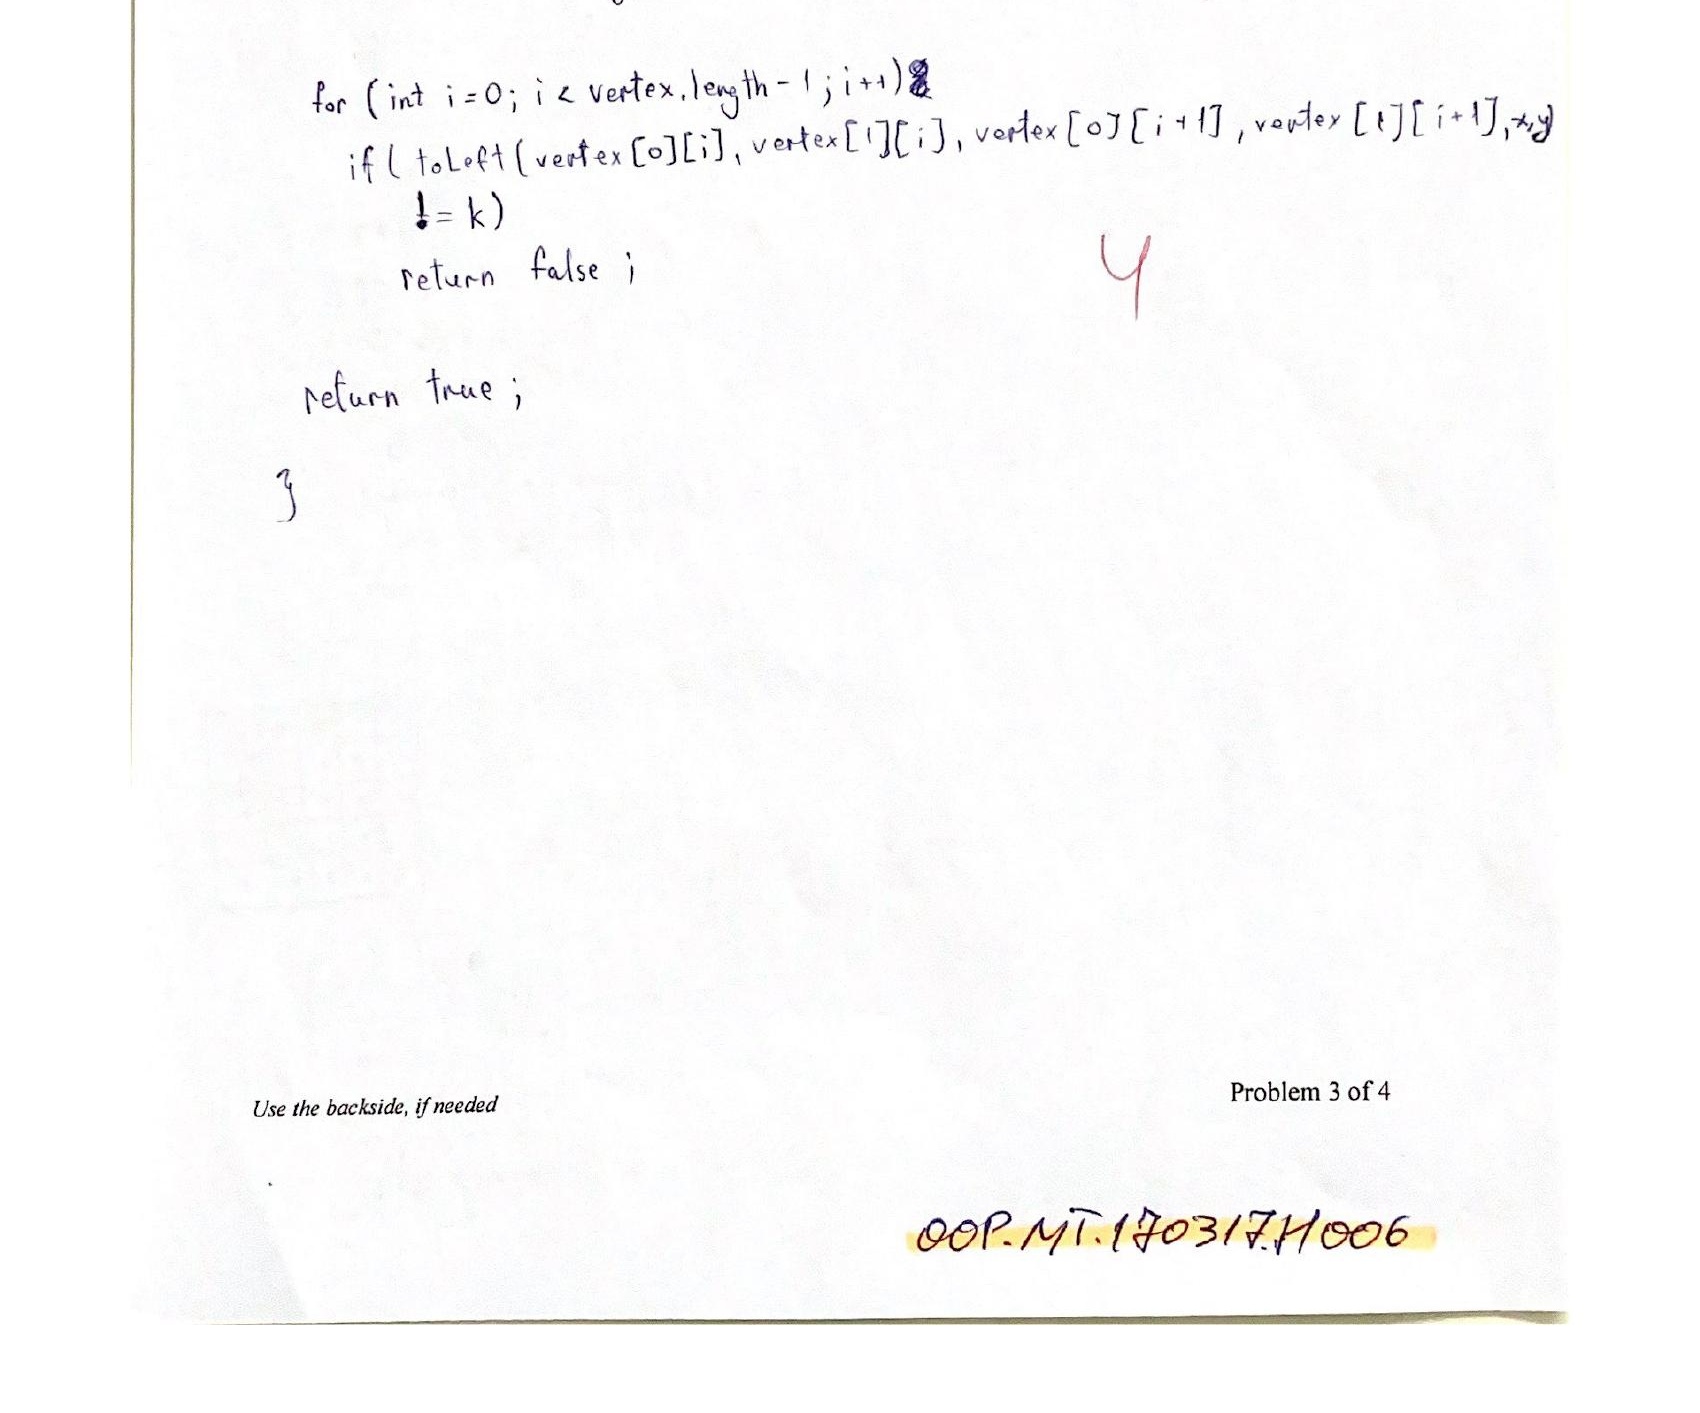 for (int i=0; i < vertex.length-1; i++)
if ( toLeft (vertex[0][i], vertex[1][i], vertex[0][i+1], vertex[1][i+1], x,y)
!= k)
return false ;
4
return true ;
}
Use the backside, if needed
Problem 3 of 4
OOP.MT.170317.H006